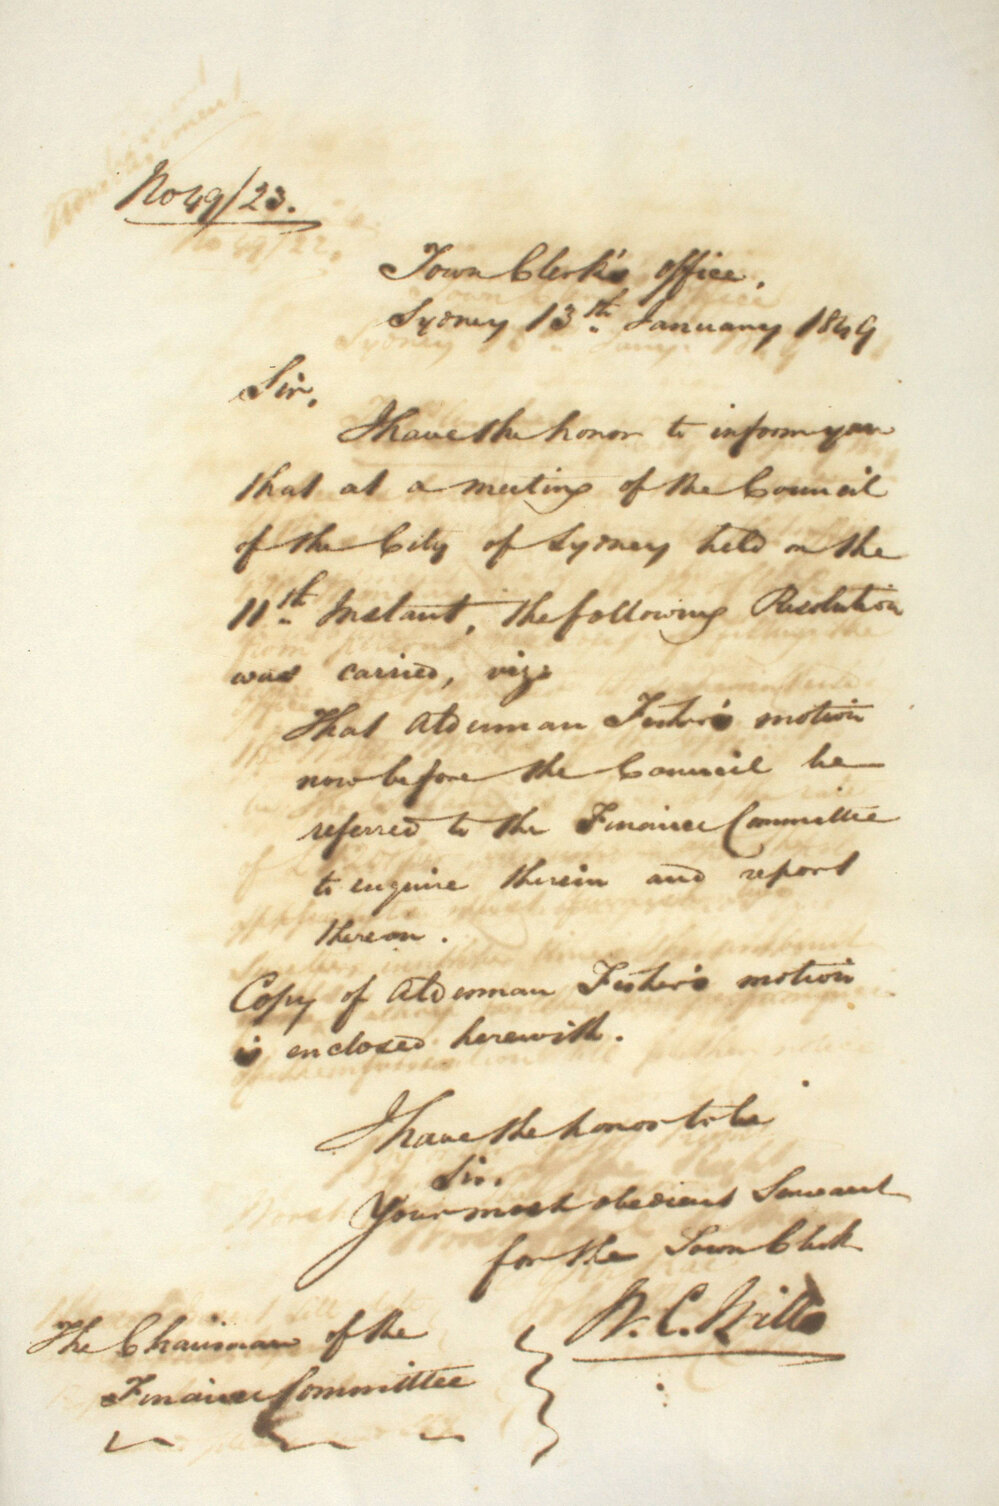 No 49/23.
Town Clerk's office,
Sydney 13th January 1849
Sir,
I have the honor to inform you
that at a meeting of the Council
of the City of Sydney held on the
11th Instant, the following Resolution
was carried, viz
That Alderman Fisher's motion
now before the Council be
referred to the Finance Committee
to enquire therein and report
thereon.
Copy of Alderman Fisher's motion
is enclosed herewith.
I have the honor to be
Sir,
Your most obedient Servant
for the Town Clerk
W. C. Wills
The Chairman of the
Finance Committee